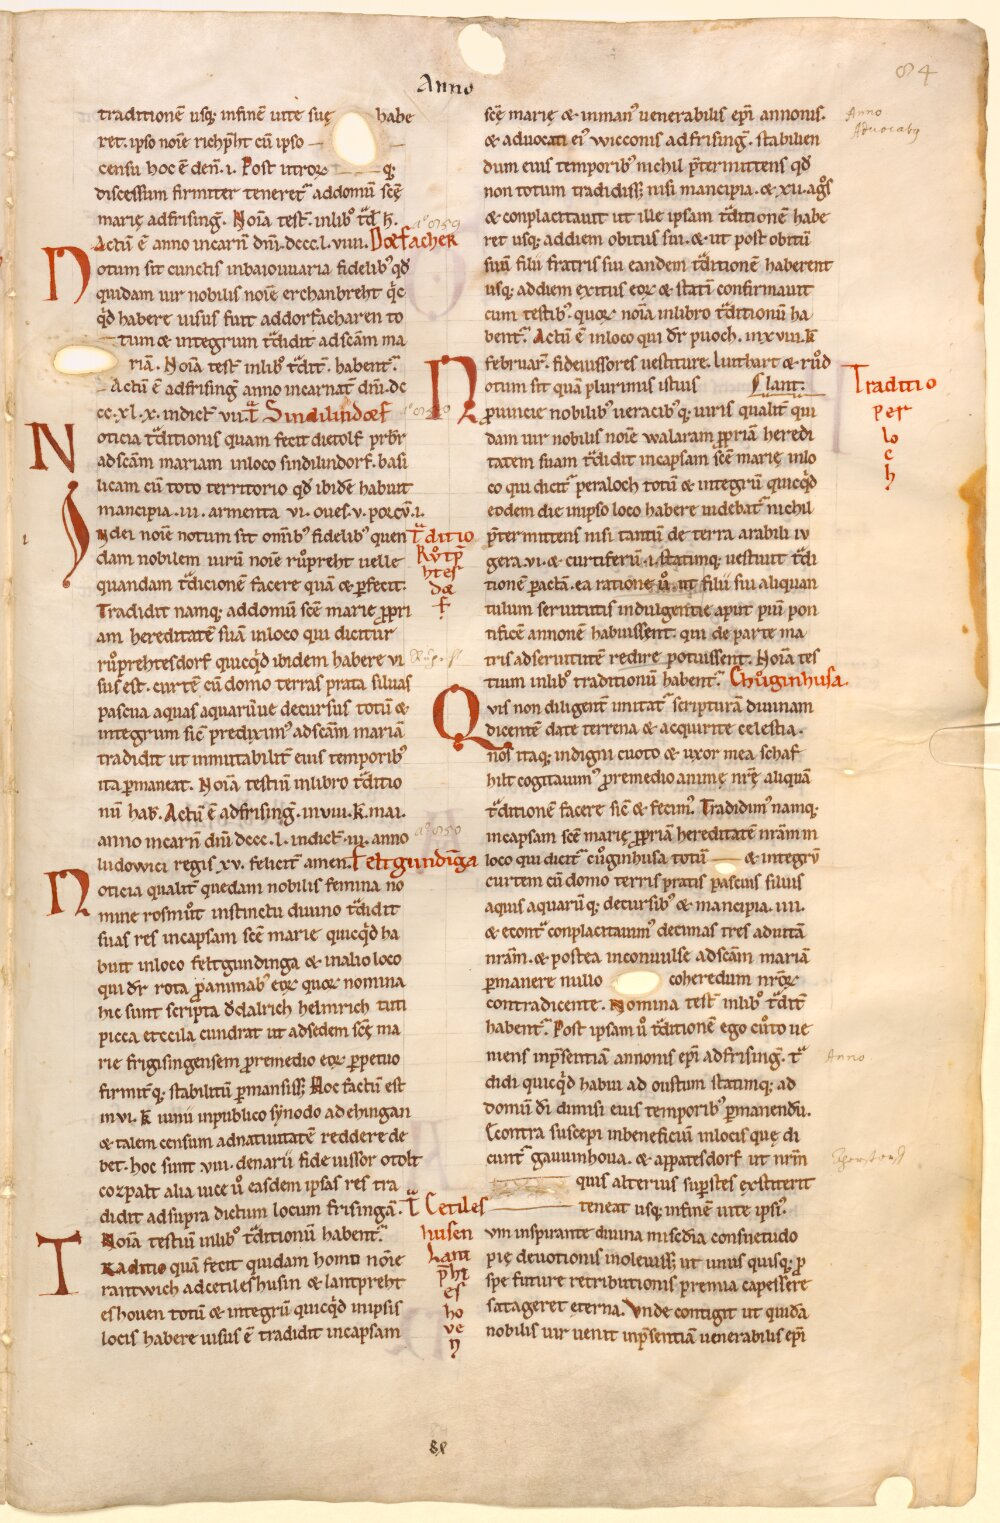 Anno
84
traditionē usq; infinē uite suę habe
ret. ipso noīe richp̄ht cū ipso
censu hoc ē deñ. i. Post utroꝝ q;
discessum firmiter teneret᷑ addomū scę̄
marię adfrising̃. Noīa test̃. inlib᷒ t᷑d̃ h̃.
Actū ē anno incarñ dn̄i. dccc. l. viiii. Dorfacher
Notum sit cunctis inbaiouuaria fidelib᷒ qd̄
quidam uir nobilis noīe erchanbreht q̄c
q̄d habere uisus fuit addorfacharen to
tum & integrum t᷑didit adscām ma
riā. Noīa test̃ inlib᷒ t᷑ditt̃. habent᷑.
Actū ē adfrising̃ anno incarnat̃ dn̄i. dc
cc. xl. x. indict̃ vii. T᷑ Sindilindorf
Noticia t᷑ditionis quam fecit dietolf prb̄r
adscām mariam inloco sindilindorf. basi
licam cū toto territorio qd̄ ibidē habuit
mancipia. iii. armenta vi. oues. v. porcū. i.
In dei noīe notum sit om̄ib᷒ fidelib᷒ quen
T᷑ditio
Růtp̄
htes
do
f
dam nobilem uirū noīe růpreht uelle
quandam t᷑dicionē facere quā & ꝑfecit.
Tradidit namq; addomū scē marię ꝓpri
am hereditatē suā inloco qui dicitur
růprehtesdorf quicq̄d ibidem habere vi
sus est. curtē cū domo terras prata siluas
pascua aquas aquarūue decursus totū &
integrum sic̄ predixim᷒ adscām mariā
tradidit ut inmutabilit̃ eius temporib᷒
ita ꝑmaneat. Noīa testiū inlibro t᷑ditio
nū hab̃. Actū ē adfrising̃. inviii. k̄. mai.
anno incarñ dn̄i dccc. l. indict̃. iii. anno
ludowici regis xv. felicit̃ amen. Feltgundīga
Noticia qualit̃ quedam nobilis femina no
mine rosmůt instinctu diuino t᷑didit
suas res incapsam scē marie quicq̄d ha
buit inloco feltgundinga & inalio loco
qui dr̄ rota ꝓ animab᷒ eoꝝ quoꝝ nomina
hic sunt scripta ŏdalrich helmrich tuti
picca etccila cundrat ut adsedem scę̄ ma
rie frigisingensem ꝓremedio eoꝝ ꝑpetuo
firmit̃q; stabilitū ꝑmansiss̃. Hoc factū est
invi. k̄ iunii inpublico sẏnodo ad ehingan
& talem censum adnatiuitatē reddere de
bet. hoc sunt viii. denarii fide iussor otolt
cozpalt alia uice ů easdem ipsas res tra
didit adsupra dictum locum frisingā. T᷑ Cetiles
husen
Lant
p̄ht
es
ho
ve
n
Noīa testiū inlib᷒ t᷑ditionū habent᷑.
Traditio quā fecit quidam homo noīe
rantwich adcetileshusin & lantpreht
eshouen totū & integrū quicq̄d inipsis
locis habere uisus ē tradidit incapsam
scę̄ marię & inman᷒ uenerabilis epī annonis.
& aduocati ei᷒ wicconis adfrising̃. stabilien
dum eius temporib᷒ nichil p̄termittens qd̄
non totum tradidiss̃ nisi mancipia. & xii. ag̊s
& conplacitauit ut ille ipsam t᷑ditionē habe
ret usq; addiem obitus sui. & ut post obitū
suū filii fratris sui eandem t᷑ditionē haberent
usq; addiem exitus eoꝝ & statī confirmauit
cum testib᷒. quoꝝ noīa inlibro t᷑ditionū ha
bent᷑. Actū ē inloco qui dr̄ puoch. inxviii. k̄
februar̃. fideiussores uestiture. luithart & růd
lant.
Notum sit quā plurimis istius
Traditio
per
lo
c
h
ꝓuincie nobilib᷒ ueracib᷒q; uiris qualit̃ qui
dam uir nobilis noīe walaram ꝓpriā heredi
tatem suam t᷑didit incapsam scē̄ marię inlo
co qui dicit᷑ peraloch totū & integrū quicq̄d
eodem die inipso loco habere uidebat᷑ nichil
p̄termittens nisi tantū de terra arabili iv
gera. vi. & curtiferū. i. statimq; uestiuit t᷑di
tionē pactā. ea ratione ů. ut filii sui aliquan
tulum seruitutis indulgentie aput piū pon
tificē annonē habuissent. qui de parte ma
tris adseruitutē redire potuissent. Noīa tes
tium inlib᷒ traditionū habent᷑. Chůginhusa.
Quis non diligent̃ imitat᷑ scripturā diuinam
dicentē date terrena & acquirite celestia.
nos itaq; indigni cuoto & uxor mea schaf
hilt cogitauim᷒ ꝓremedio anime nrę̄ aliquā
t᷑ditionē facere sic̄ & fecim᷒. Tradidim᷒ namq;
incapsam scē marię ꝓpriā hereditatē nrām in
loco qui dicit᷑ cůginhusa totū & integrū
curtem cū domo terris pratis pascuis siluis
aquis aquarūq; decursib᷒ & mancipia. iiii.
& econt᷑ conplacitauim᷒ decimas tres aduitā
nrām. & postea inconuulse adscām mariā
ꝑmanere nullo coheredum nr̄oꝝ
contradicente. Nomina test̃ inlib᷒ t᷑ditt̃
habent᷑. Post ipsam ů t᷑ditionē ego cůto ue
niens inp̄sentiā annonis epī adfrising̃. t᷑
didi quicq̄d habui ad oustum statimq; ad
domū dī dimisi eius temporib᷒ ꝑmanendū.
Econtra suscepi inbeneficiū inlocis quę di
cunt᷑ gauuinhoua. & appatesdorf ut nrm̄
quis alterius suꝑstes exstiterit
teneat usq; infinē uite ipsi᷒.
Cum inspirante diuina misc̄dia consuetudo
pię deuotionis inoleuiss̃ ut unus quisq; ꝓ
spe future retributionis premia capessere
satageret eterna. Vnde contigit ut quidā
nobilis uir uenit inp̄sentiā uenerabilis epī
Anno
Aduocatus
Anno